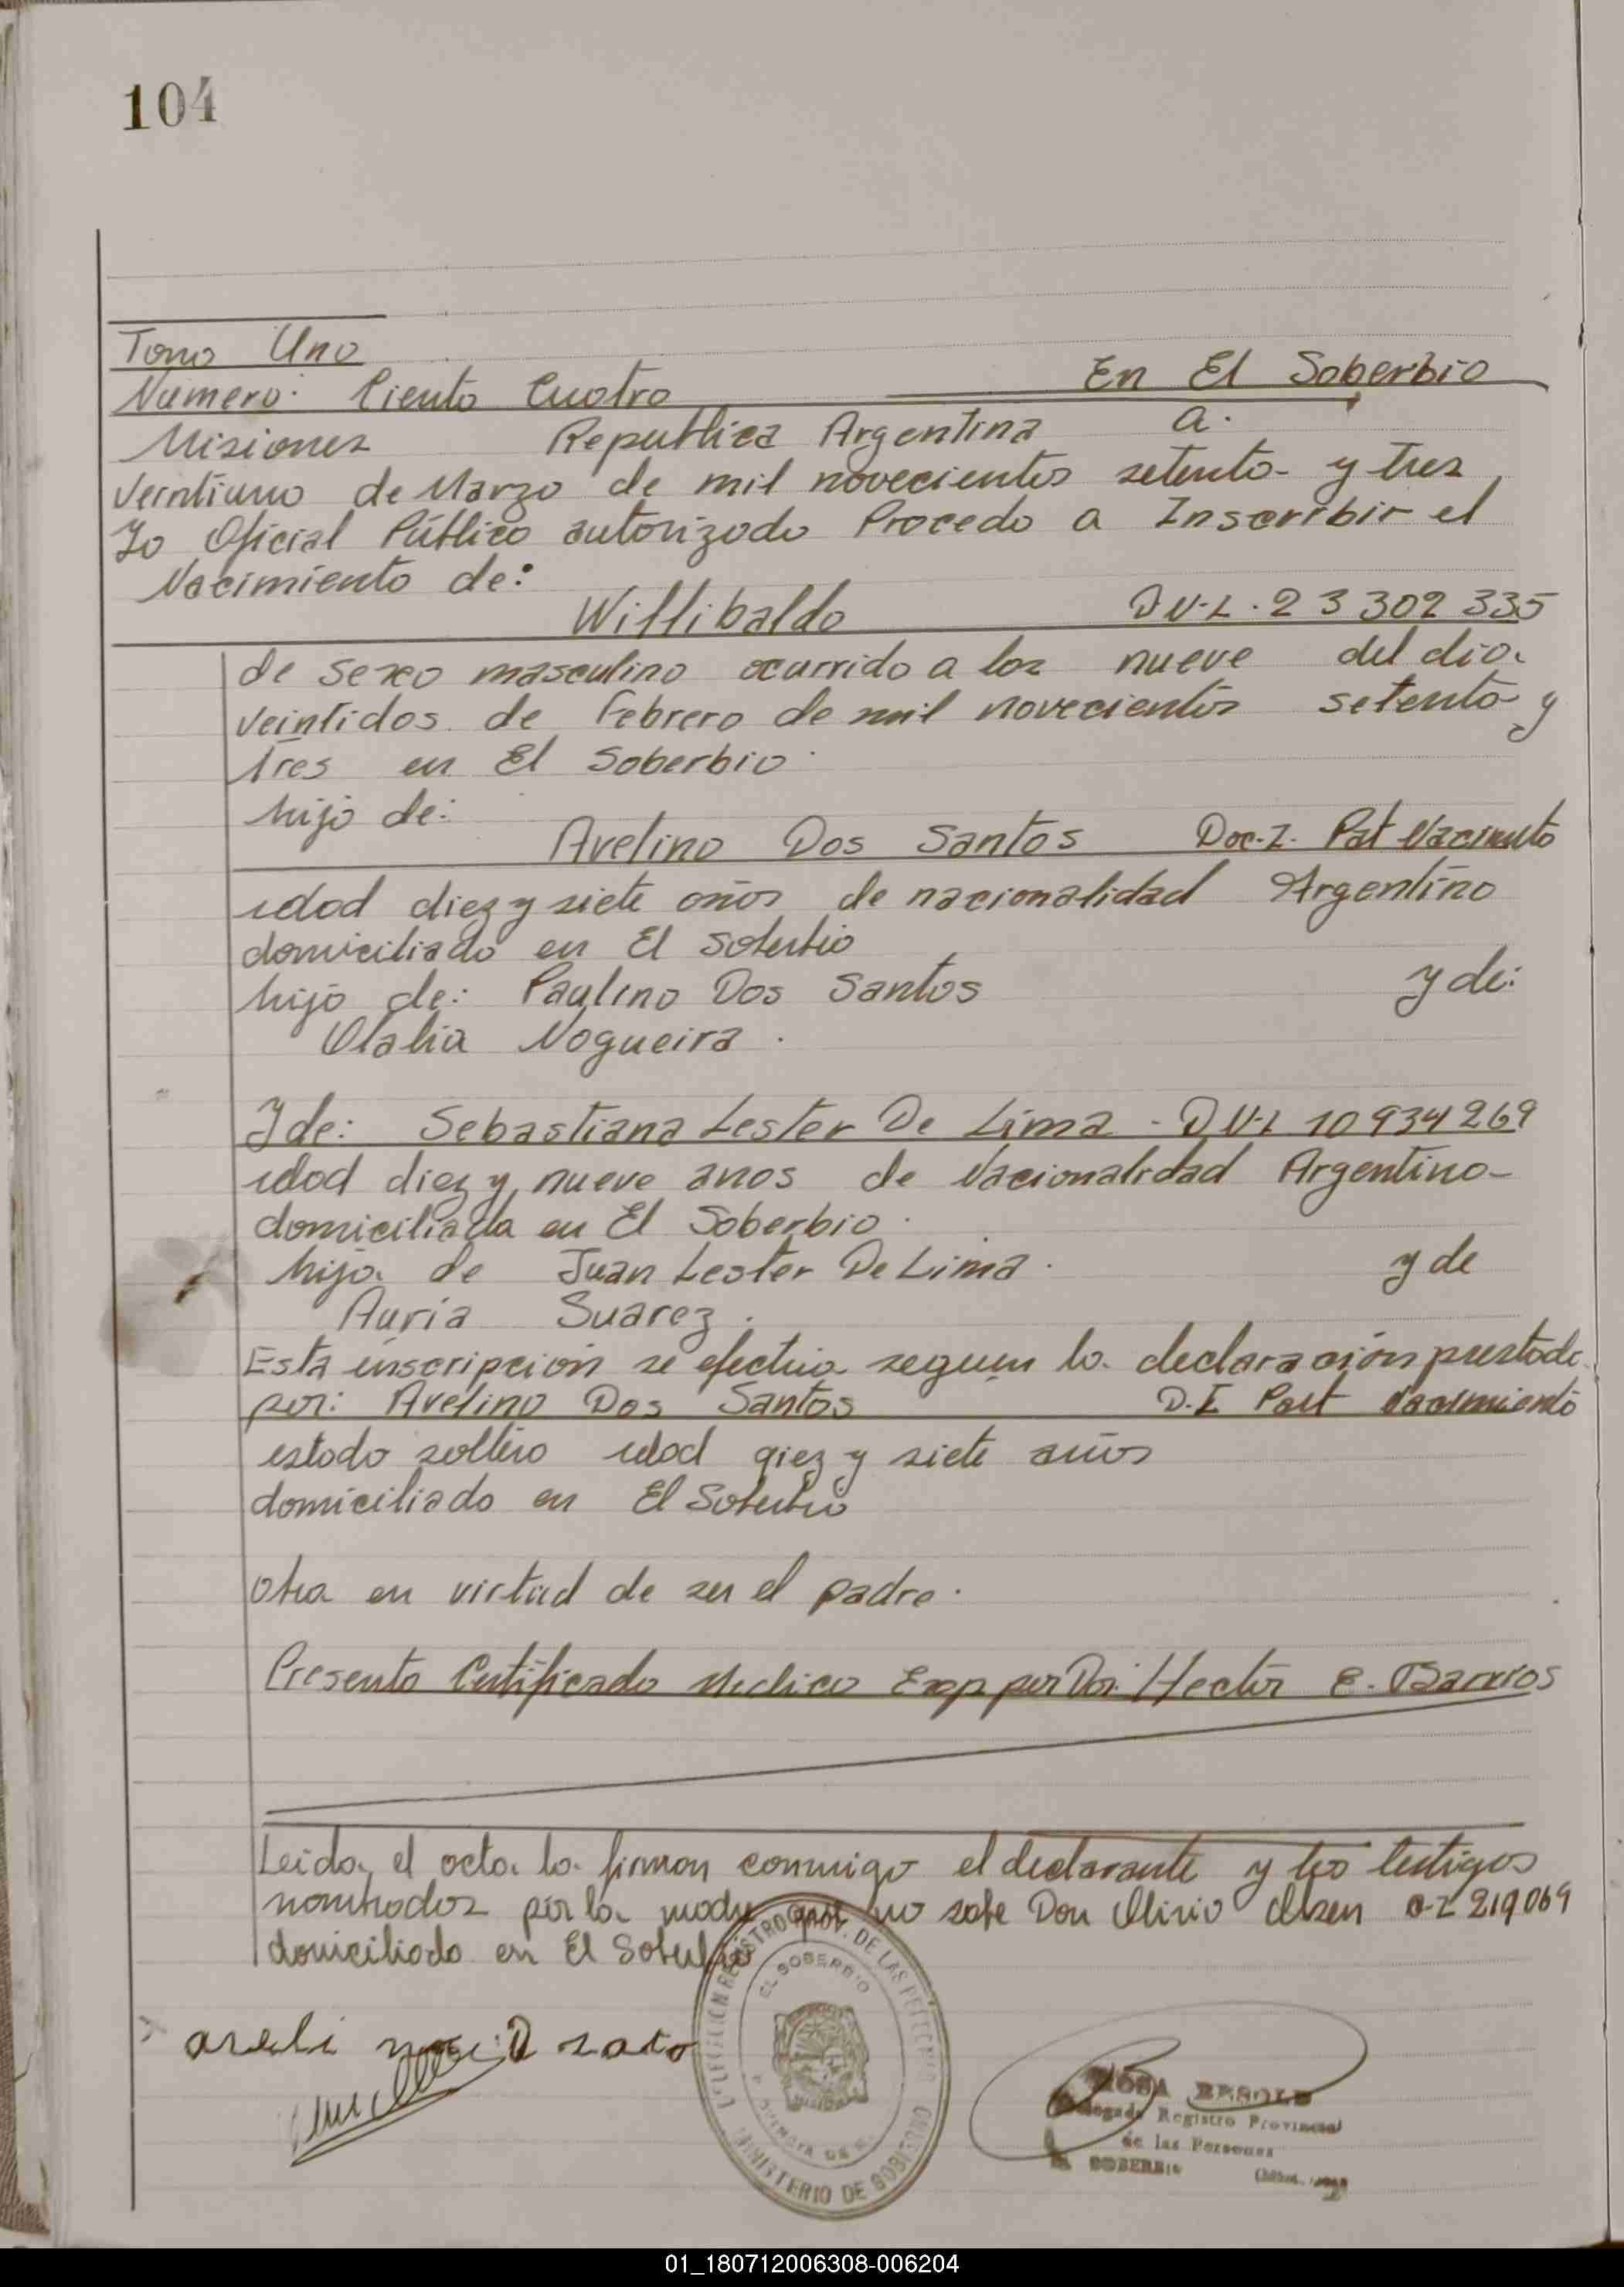 104
Tomo Uno
Número: Ciento Cuatro En El Soberbio
Misiones Republica Argentina a.
Veintiuno de Marzo de mil novecientos setenta y tres
Yo Oficial Público autorizado Procedo a Inscribir el
Nacimiento de:
Willibaldo D N-I. 23 302 335
de sexo masculino ocurrido a las nueve del dia
veintidos de Febrero de mil novecientos setenta y
tres en El Soberbio.
hijo de:
Avelino Dos Santos Doc-I. Pat Nacimiento
edad diez y siete años de nacionalidad Argentino
domiciliado en El Soberbio
hijo de: Paulino Dos Santos y de:
Olalia Nogueira.
Y de: Sebastiana Lester De Lima - D N-I 10 934 269
edad diez y nueve anos de Nacionalidad Argentina
domiciliada en El Soberbio.
hija de Juan Lester De Lima. y de
Auria Suarez.
Esta inscripción se efectua segun la declaración prestada
por: Avelino Dos Santos D.I Part Nacimiento
estado soltero edad diez y siete años
domiciliado en El Soberbio
Obra en virtud de ser el padre.
Presento Certificado Medico Exp por Dor. Hector E. Barrios
Leida el acta la firman conmigo el declarante y los testigos
nombrados por la madre que no sabe Don Olirio 219 069
domiciliado en El Soberbio
DELEGACION REGISTRO PROV. DE LAS PERSONAS
EL SOBERBIO
PROVINCIA DE
MINISTERIO DE GOBIERNO
ROSA
Delegada Registro Provincial
de las Personas
EL SOBERBIO
01_180712006308-006204